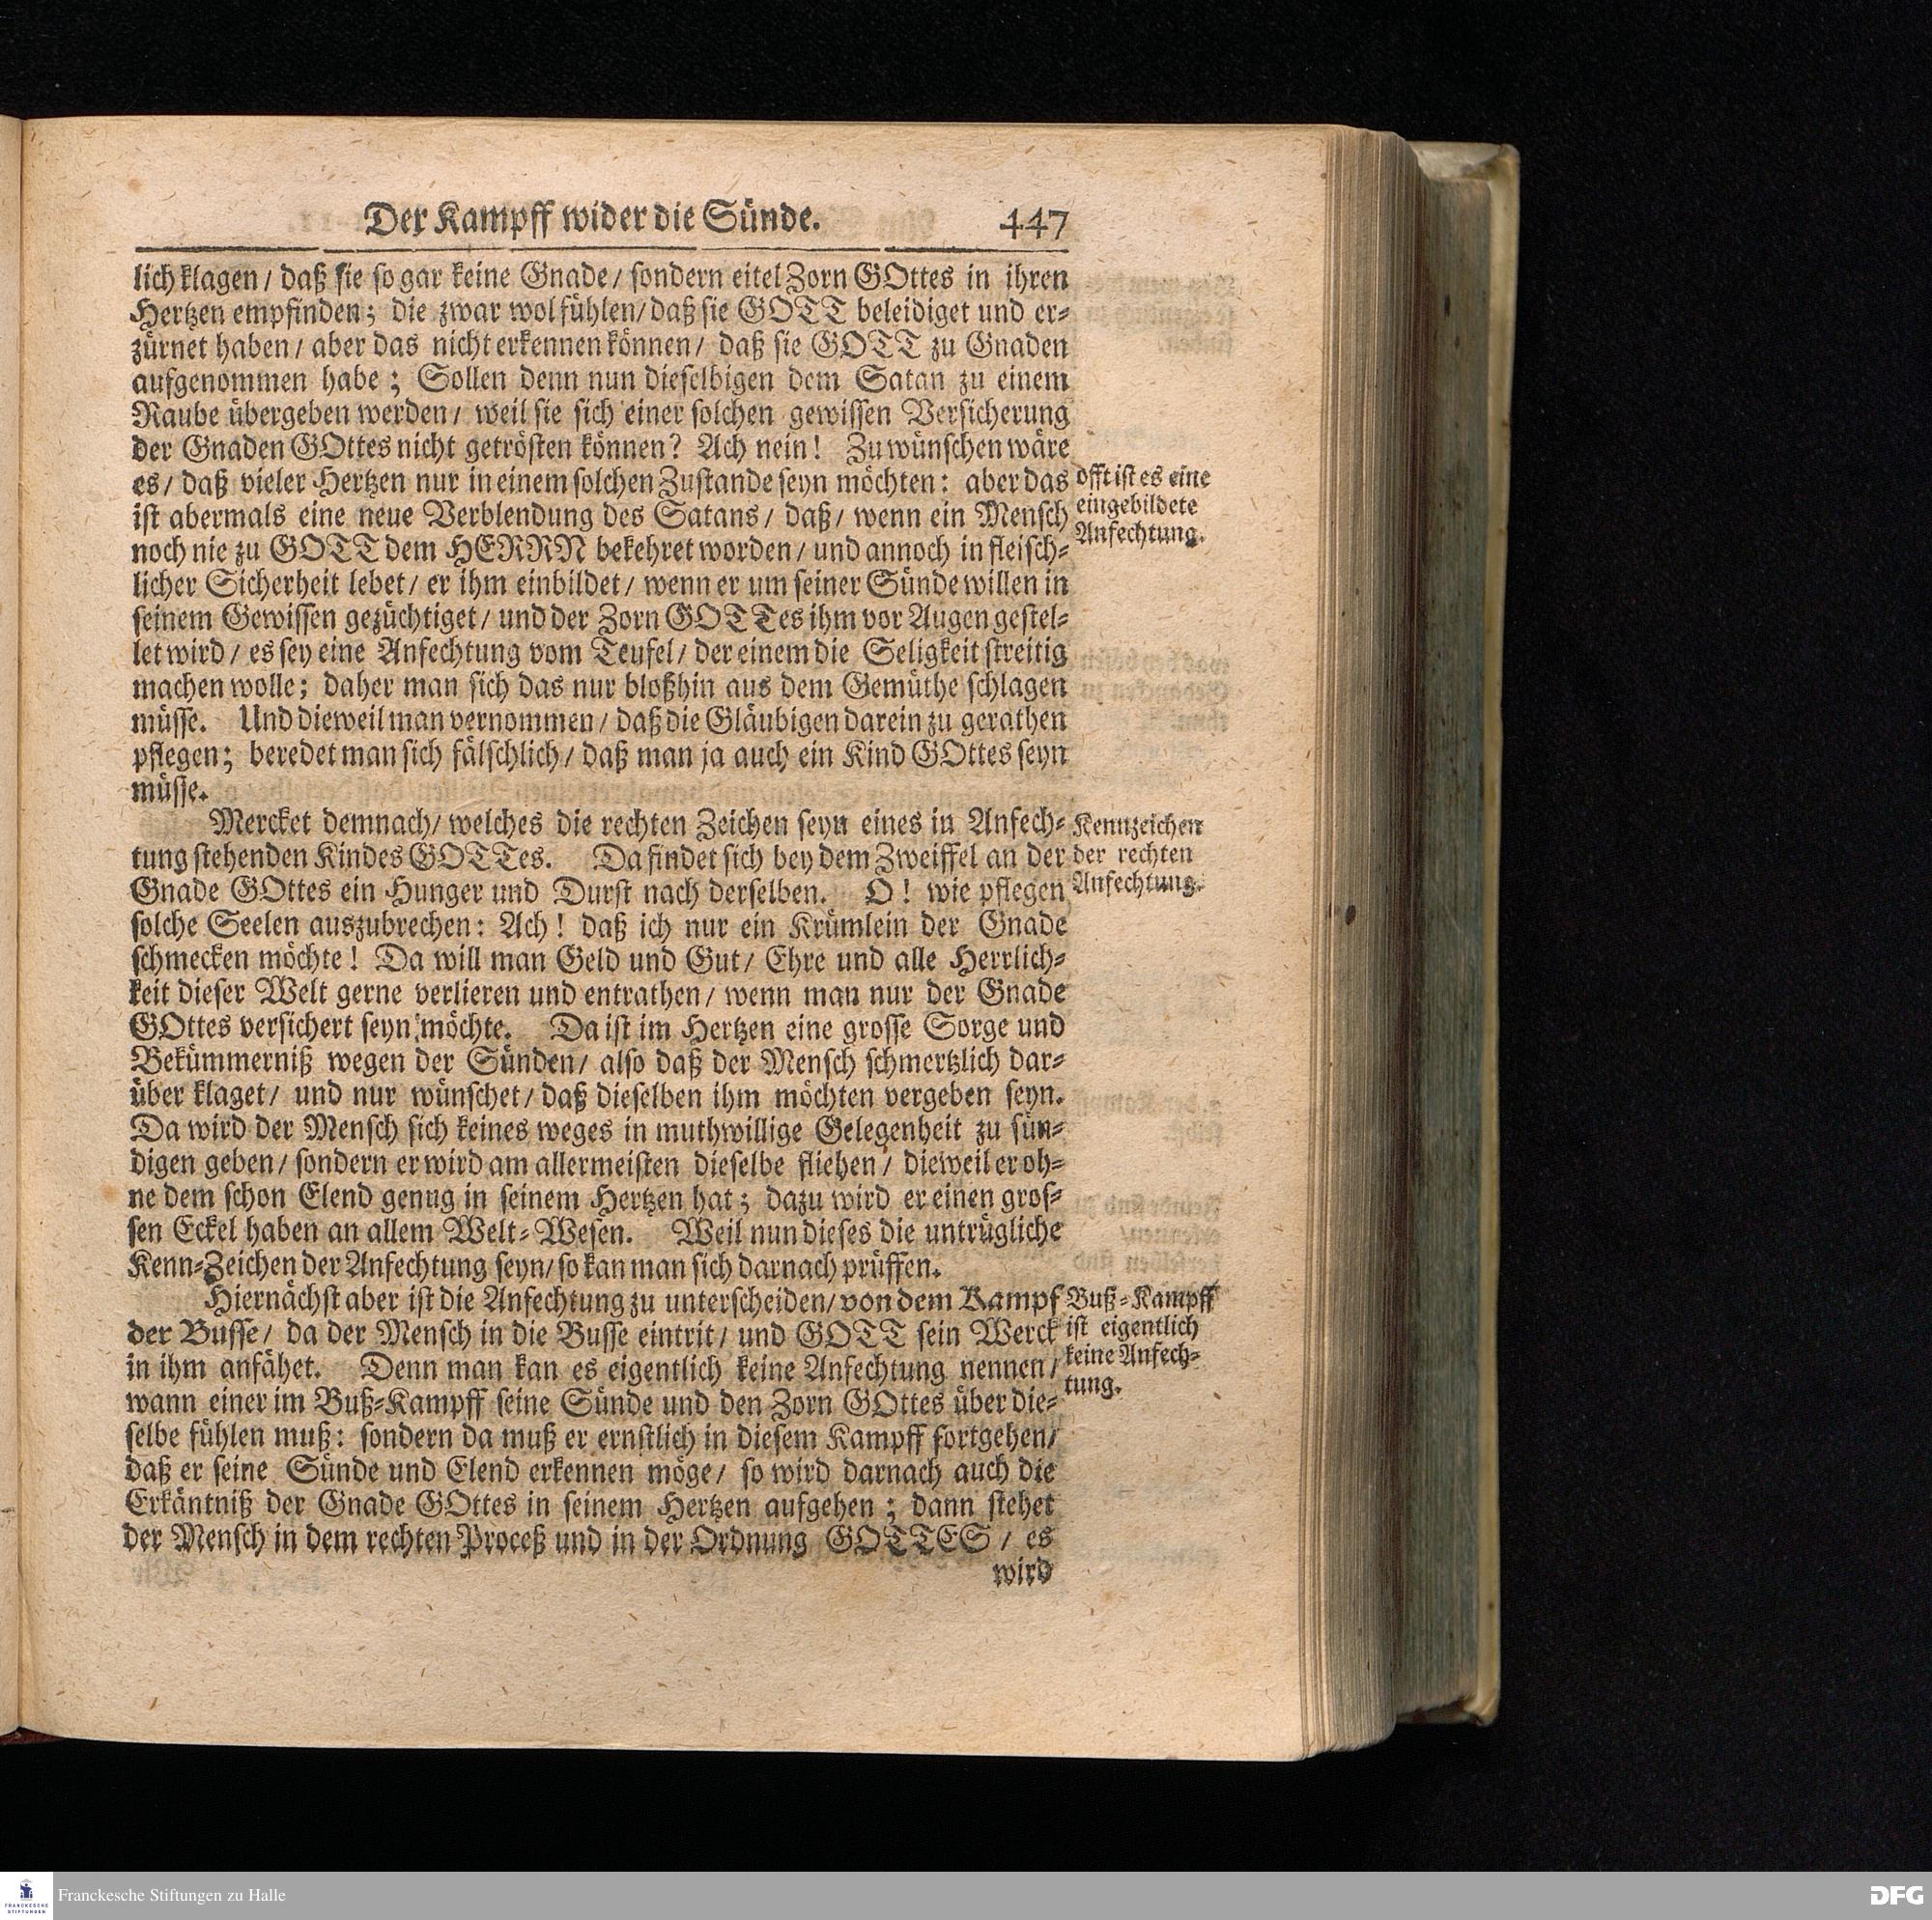 Der Kampff wider die Sünde. 447
lich klagen / daß sie so gar keine Gnade / sondern eitel Zorn GOttes in ihren
Hertzen empfinden; die zwar wol fühlen / daß sie GOTT beleidiget und er-
zürnet haben / aber das nicht erkennen können / daß sie GOTT zu Gnaden
aufgenommen habe; Sollen denn nun dieselbigen dem Satan zu einem
Raube übergeben werden / weil sie sich einer solchen gewissen Versicherung
der Gnaden GOttes nicht getrösten können? Ach nein! Zu wünschen wäre
es / daß vieler Hertzen nur in einem solchen Zustande seyn möchten: aber das
ist abermals eine neue Verblendung des Satans / daß / wenn ein Mensch
noch nie zu GOTT dem HERRN bekehret worden / und annoch in fleisch-
licher Sicherheit lebet / er ihm einbildet / wenn er um seiner Sünde willen in
seinem Gewissen gezüchtiget / und der Zorn GOTTes ihm vor Augen gestel-
let wird / es sey eine Anfechtung vom Teufel / der einem die Seligkeit streitig
machen wolle; daher man sich das nur bloßhin aus dem Gemüthe schlagen
müsse. Und dieweil man vernommen / daß die Gläubigen darein zu gerathen
pflegen; beredet man sich fälschlich / daß man ja auch ein Kind GOttes seyn
müsse.
Offt ist es eine
eingebildete
Anfechtung.
Mercket demnach / welches die rechten Zeichen seyn eines in Anfech-
tung stehenden Kindes GOTTes. Da findet sich bey dem Zweiffel an der
Gnade GOttes ein Hunger und Durst nach derselben. O! wie pflegen
solche Seelen auszubrechen: Ach! daß ich nur ein Krümlein der Gnade
schmecken möchte! Da will man Geld und Gut / Ehre und alle Herrlich-
keit dieser Welt gerne verlieren und entrathen / wenn man nur der Gnade
GOttes versichert seyn möchte. Da ist im Hertzen eine grosse Sorge und
Bekümmerniß wegen der Sünden / also daß der Mensch schmertzlich dar-
über klaget / und nur wünschet / daß dieselben ihm möchten vergeben seyn.
Da wird der Mensch sich keines weges in muthwillige Gelegenheit zu sün-
digen geben / sondern er wird am allermeisten dieselbe fliehen / dieweil er oh-
ne dem schon Elend genug in seinem Hertzen hat; dazu wird er einen gros-
sen Eckel haben an allem Welt-Wesen. Weil nun dieses die untrügliche
Kenn-Zeichen der Anfechtung seyn / so kan man sich darnach prüffen.
Kennzeichen
der rechten
Anfechtung.
Hiernächst aber ist die Anfechtung zu unterscheiden / von dem Kampf
der Busse / da der Mensch in die Busse eintrit / und GOTT sein Werck
in ihm anfähet. Denn man kan es eigentlich keine Anfechtung nennen /
wann einer im Buß-Kampff seine Sünde und den Zorn GOttes über die-
selbe fühlen muß: sondern da muß er ernstlich in diesem Kampff fortgehen /
daß er seine Sünde und Elend erkennen möge / so wird darnach auch die
Erkäntniß der Gnade GOttes in seinem Hertzen aufgehen; dann stehet
der Mensch in dem rechten Proceß und in der Ordnung GOTTES / es
wird
Buß-Kampff
ist eigentlich
keine Anfech-
tung.
FRANCKESCHE
STIFTUNGEN
Franckesche Stiftungen zu Halle
DFG